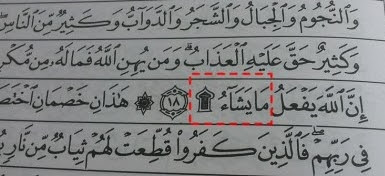 وَالنُّجُومُ وَالْجِبَالُ وَالشَّجَرُ وَالدَّوَآبُّ وَكَثِيرٌ مِّنَ النَّاسِ ۖ
وَكَثِيرٌ حَقَّ عَلَيْهِ الْعَذَابُ ۗ وَمَن يُهِنِ اللَّهُ فَمَالَهُ مِن مُّكْرِمٍ
إِنَّ اللَّهَ يَفْعَلُ مَا يَشَآءُ ۩ ﴿١٨﴾ ۞ هَٰذَانِ خَصْمَانِ
فِي رَبِّهِمْ ۖ فَالَّذِينَ كَفَرُوا۟ قُطِّعَتْ لَهُمْ ثِيَابٌ مِّن نَّارٍ